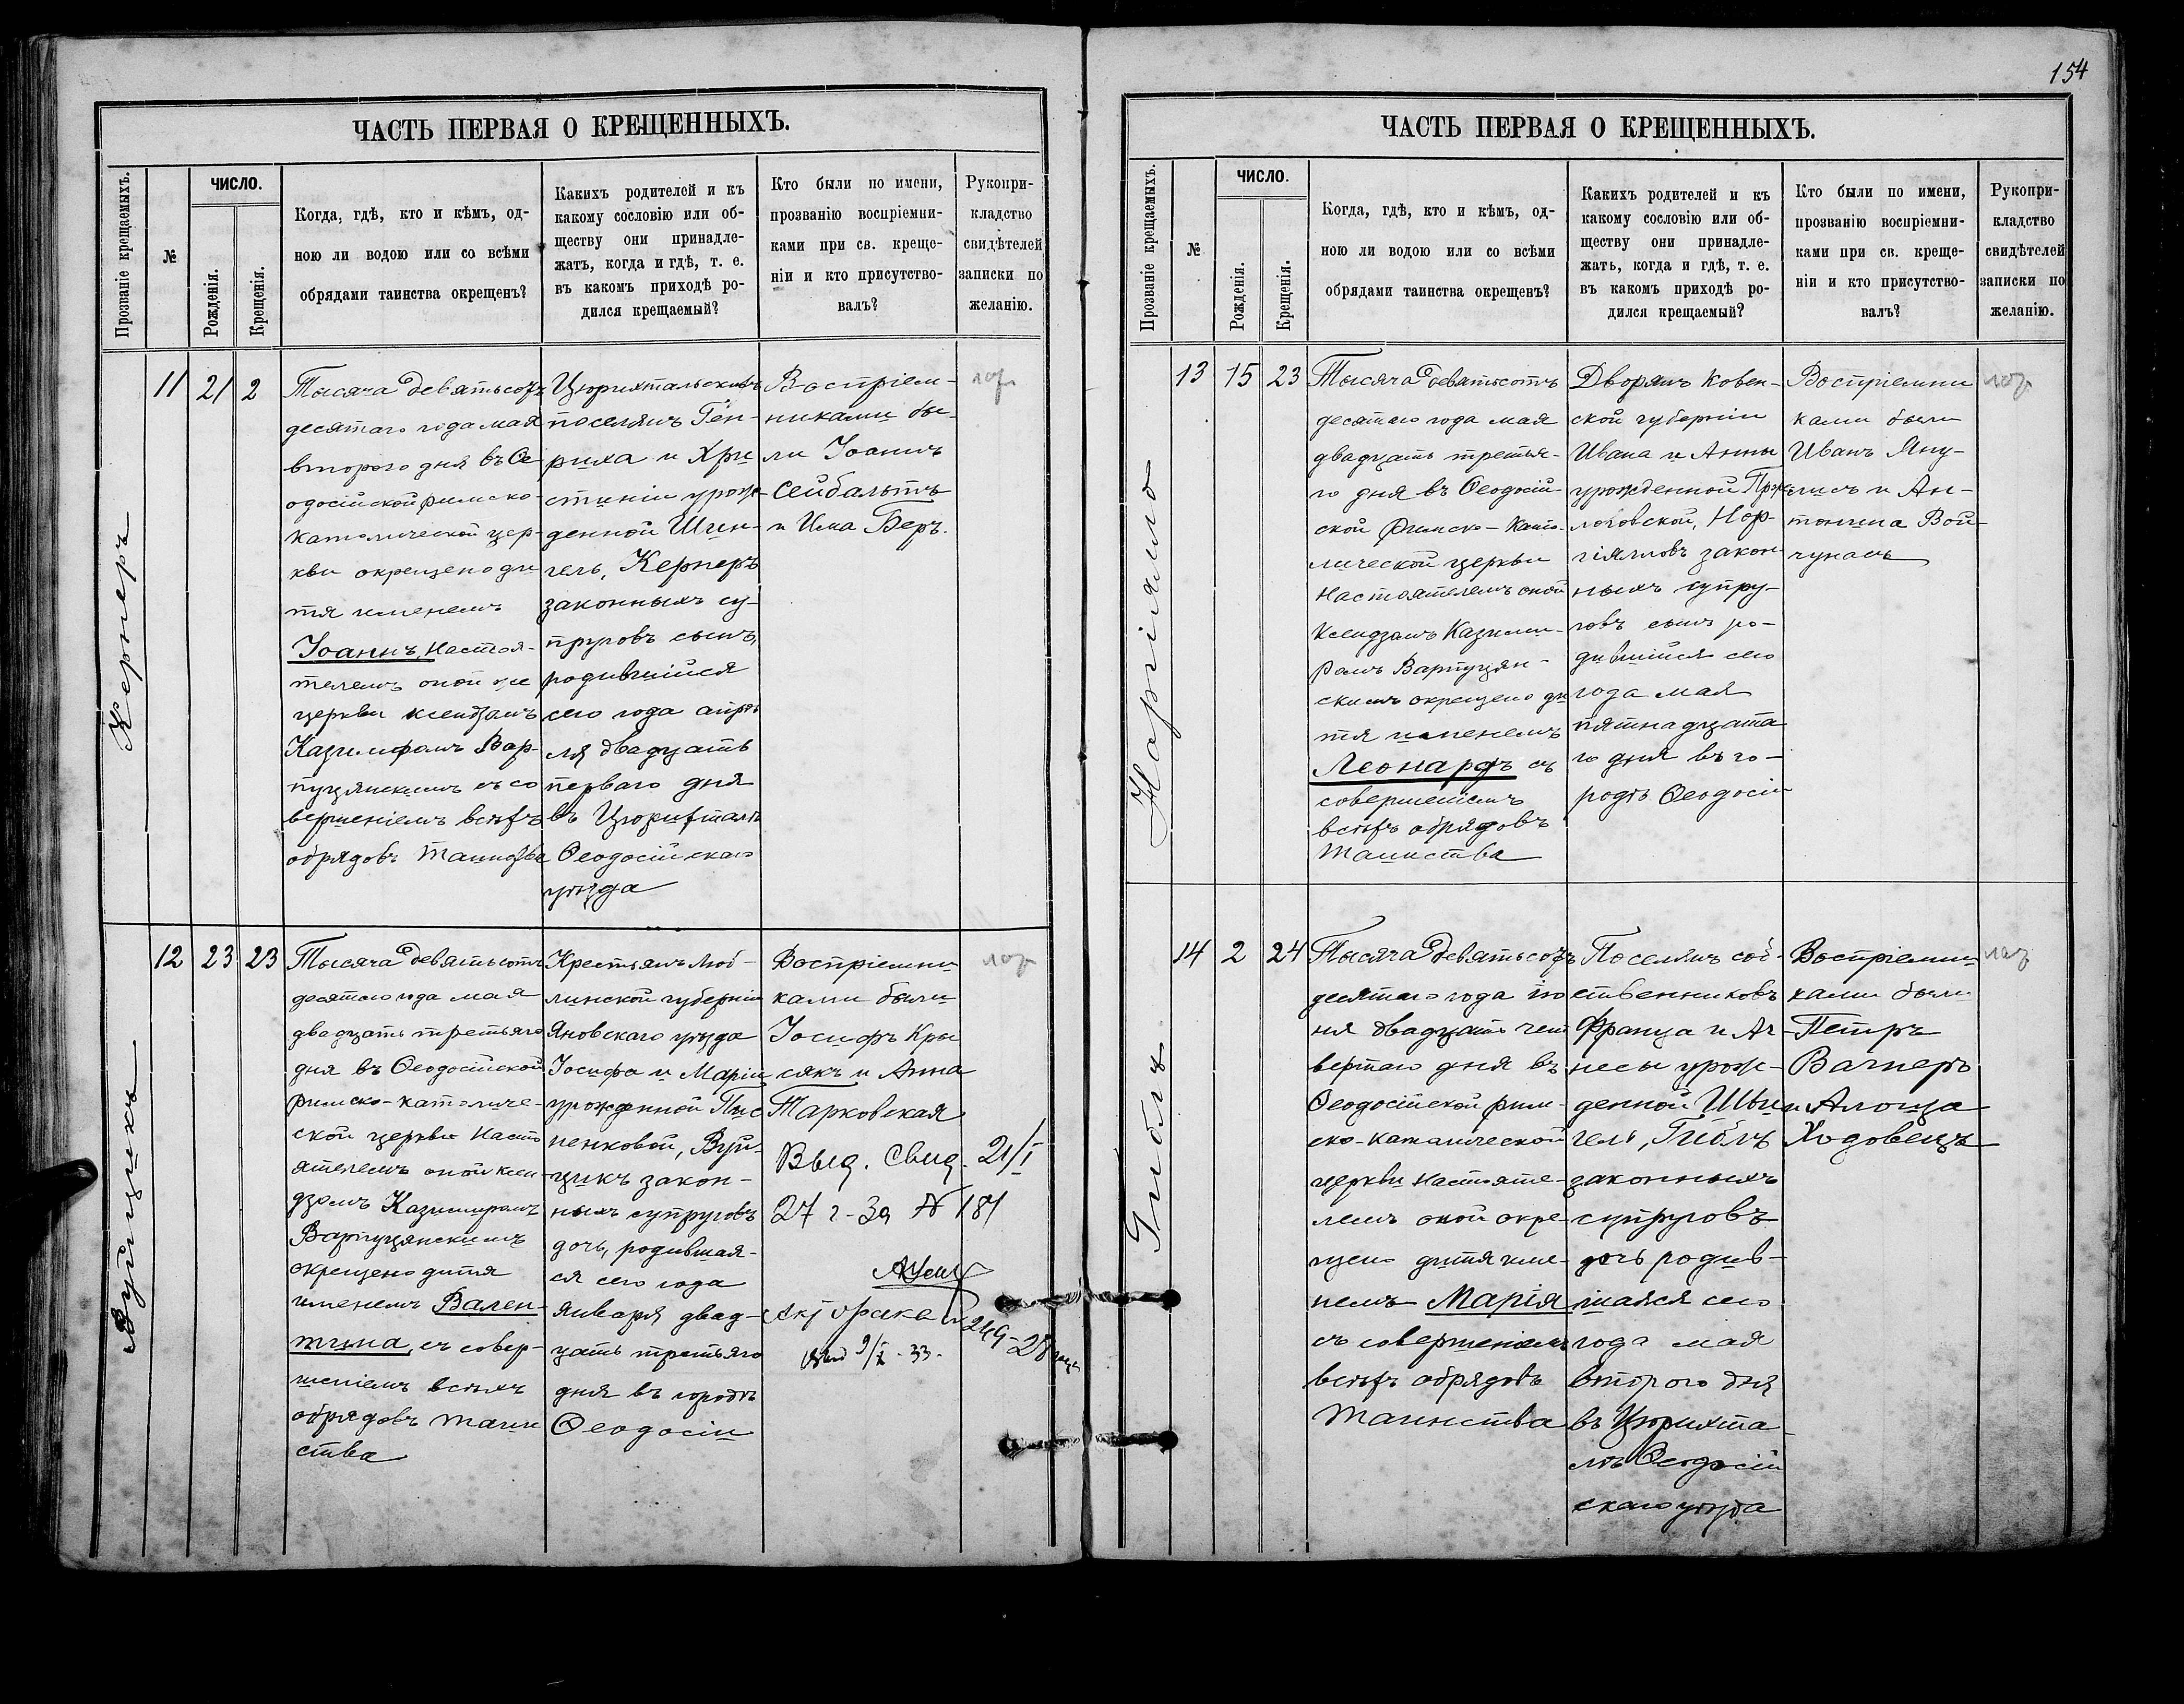 ЧАСТЬ ПЕРВАЯ О КРЕЩЕННЫХЪ.
Прозваніе крещаемыхъ.
№
ЧИСЛО.
Рожденія.
Крещенія.
Когда, гдѣ, кто и кѣмъ, од-
ною ли водою или со всѣми
обрядами таинства окрещенъ?
Какихъ родителей и къ
какому сословію или об-
ществу они принадле-
жатъ, когда и гдѣ, т. е.
въ какомъ приходѣ ро-
дился крещаемый?
Кто были по имени,
прозванію воспріемни-
ками при св. креще-
ніи и кто присутство-
валъ?
Рукопри-
кладство
свидѣтелей
записки по
желанію.
Кернеръ
11
21
2
Тысяча девятьсотъ
десятаго года мая
второго дня въ Ѳе-
одосійской римско-
католической цер-
кви окрещено ди
тя именемъ
Іоаннъ, Настоя-
телемъ оной же
церкви ксендзомъ
Казимиромъ Вар-
пуцянскимъ съ со
вершеніемъ всѣхъ
обрядовъ Таинства
Цюрихтальскихъ
поселянъ Ген-
риха и Хри
стини урож-
денной Шин-
гель, Кернеръ
законныхъ су-
пруговъ сынъ,
родившійся
сего года апрѣ
ля двадцать
перваго дня
въ Цюрихталѣ
Ѳеодосійскаго
уѣзда
Воспріем-
никами бы-
ли Іоаннъ
Сейбальтъ
и Има Беръ.
Вуйцикъ
12
23
23
Тысяча девятьсотъ
десятаго года мая
двадцать третьяго
дня въ Ѳеодосійской
римско-католиче-
ской церкви Насто
ятелемъ оной ксен-
дзомъ Казимиромъ
Варпуцянскимъ
окрещено дитя
именемъ Вален-
тина, съ совер-
шеніемъ всѣхъ
обрядовъ таин
ства
Крестьянъ Люб-
линской губерніи
Яновскаго уѣзда
Іосифа и Маріи
урожденной Пис
ненковой, Вуй-
цикъ закон-
ныхъ супруговъ
дочь, родившая-
ся сего года
января двад-
цать третьяго
дня въ городѣ
Ѳеодосіи
Воспріемни
ками были
Іосифъ Кры
сякъ и Анна
Тарковская
Выд. Свид. 21/I
27 г. За № 181
9/X - 33.
249-28
154
ЧАСТЬ ПЕРВАЯ О КРЕЩЕННЫХЪ.
Прозваніе крещаемыхъ.
№
ЧИСЛО.
Рожденія.
Крещенія.
Когда, гдѣ, кто и кѣмъ, од-
ною ли водою или со всѣми
обрядами таинства окрещенъ?
Какихъ родителей и къ
какому сословію или об-
ществу они принадле-
жатъ, когда и гдѣ, т. е.
въ какомъ приходѣ ро-
дился крещаемый?
Кто были по имени,
прозванію воспріемни-
ками при св. креще-
ніи и кто присутство-
валъ?
Рукопри-
кладство
свидѣтелей
записки по
желанію.
Норгіялло
13
15
23
Тысяча девятьсотъ
десятаго года мая
двадцать третья-
го дня въ Ѳеодосій-
ской Римско-Като-
лической церкви
Настоятелемъ оной
Ксендзомъ Казими-
ромъ Варпуцян-
скимъ окрещено ди
тя именемъ
Леонардъ съ
совершеніемъ
всѣхъ обрядовъ
Таинства
Дворянъ Ковен-
ской губерніи
Ивана и Анны
урожденной
Нор-
гіялловъ закон-
ныхъ супру-
говъ сынъ ро-
дившійся сего
года мая
пятнадцата
го дня въ го-
родѣ Ѳеодосіи
Воспріемни
ками были
Иванъ Яну-
и Ан-
тонина Вой-
Гиблъ
14
2
24
Тысяча девятьсотъ
десятаго года ію
ня двадцать чет
вертаго дня въ
Ѳеодосійской рим-
ско-католической
церкви Настояте-
лемъ оной окре-
щено дитя име-
немъ Марія
съ совершеніемъ
всѣхъ обрядовъ
Таинства
Поселянъ соб-
ственниковъ
Франца и Аг-
несы урож-
денной Шин
гель, Гиблъ
законныхъ
супруговъ
дочь родив-
шаяся сего
года мая
второго дня
въ Цюрихта-
лѣ Ѳеодосій
скаго уѣзда
Воспріемни
ками были
Петръ
Вагнеръ
и Алоиза
Ходовецъ